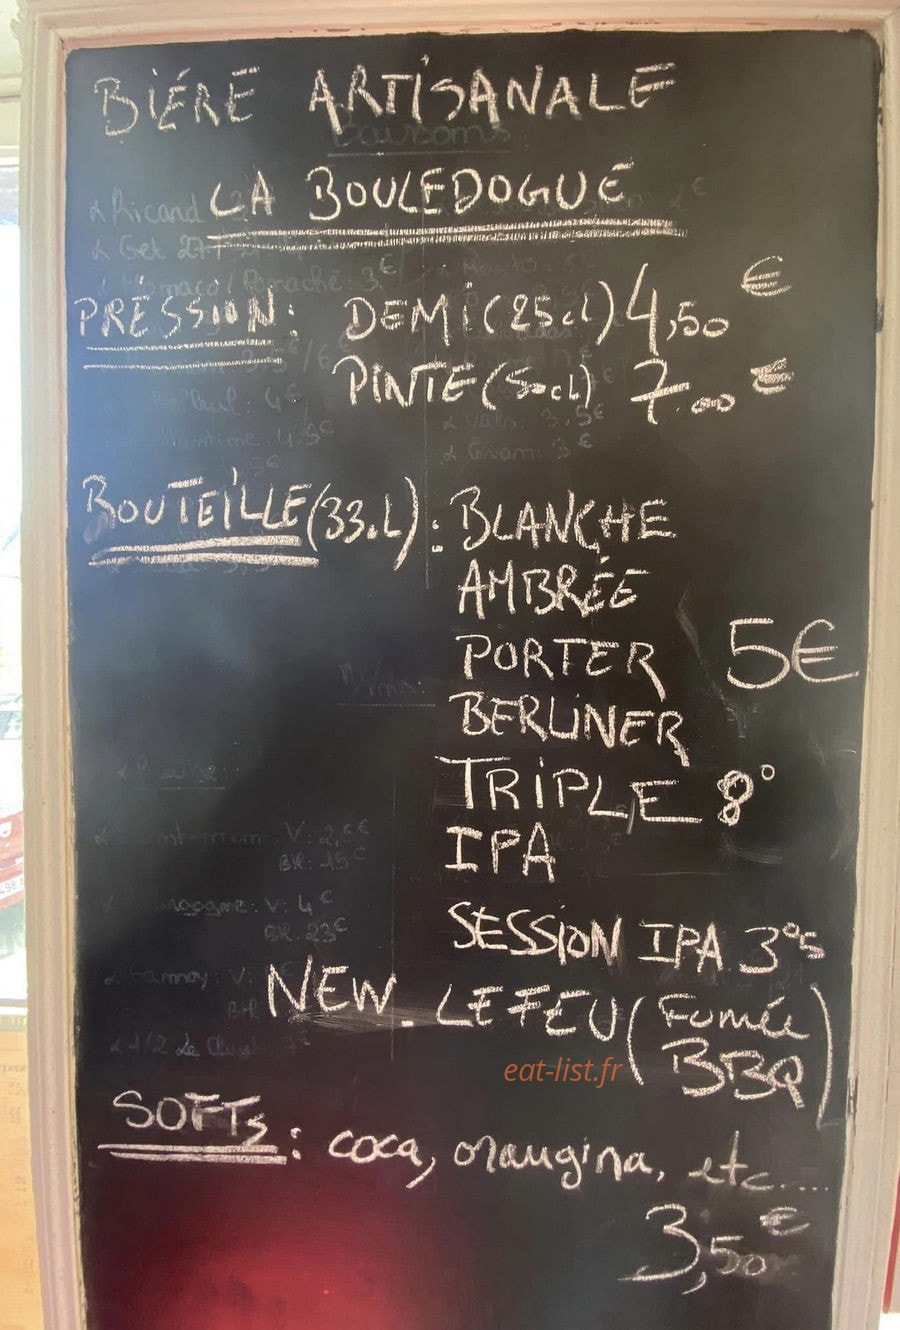 BIÉRE ARTISANALE
LA BOULEDOGUE
PRESSION: DEMI (25cl) 4,50 €
PINTE (50cl) 7.00 €
BOUTEILLE (33cL): BLANCHE
AMBRÉE
PORTER 5€
BERLINER
TRIPLE 8°
IPA
SESSION IPA 3°5
NEW. LE FEU (Fumée
BBQ)
eat-list.fr
SOFTS: coca, oraugina, etc....
3,50 €